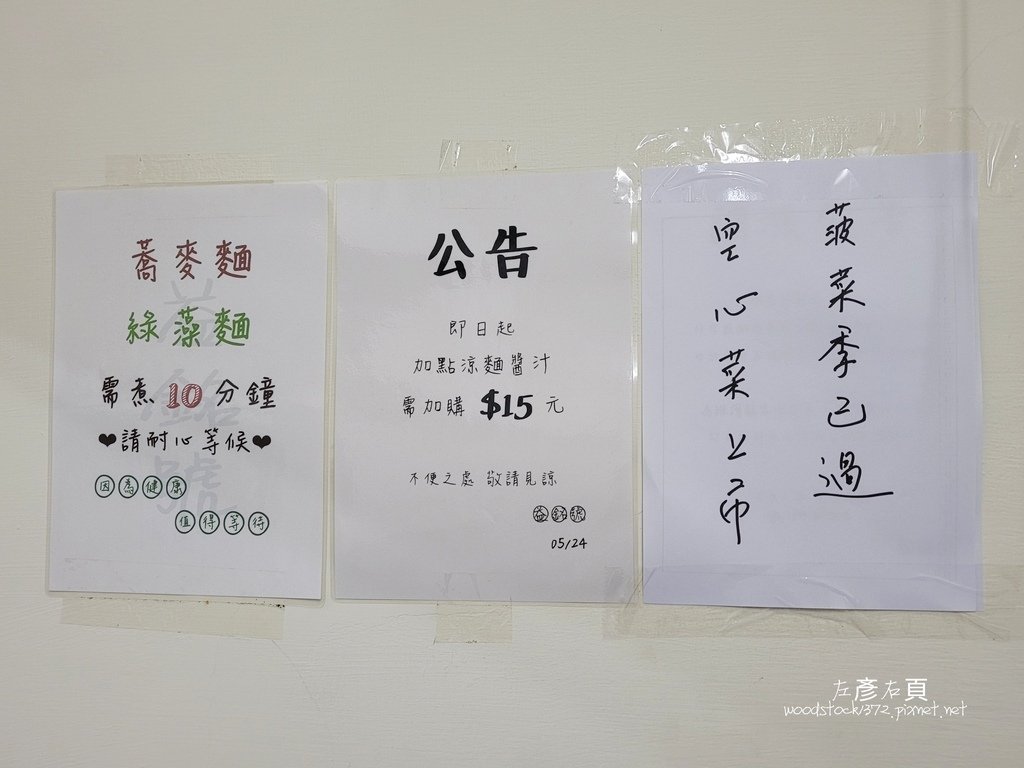 蕎麥麵
綠藻麵
需煮10分鐘
❤請耐心等候❤
因為健康
值得等待
公告
即日起
加點涼麵醬汁
需加購 $15 元
不便之處 敬請見諒
益銘號
05/24
菠菜季已過
空心菜上市
左彥右頁
woodstock1372.pixnet.net